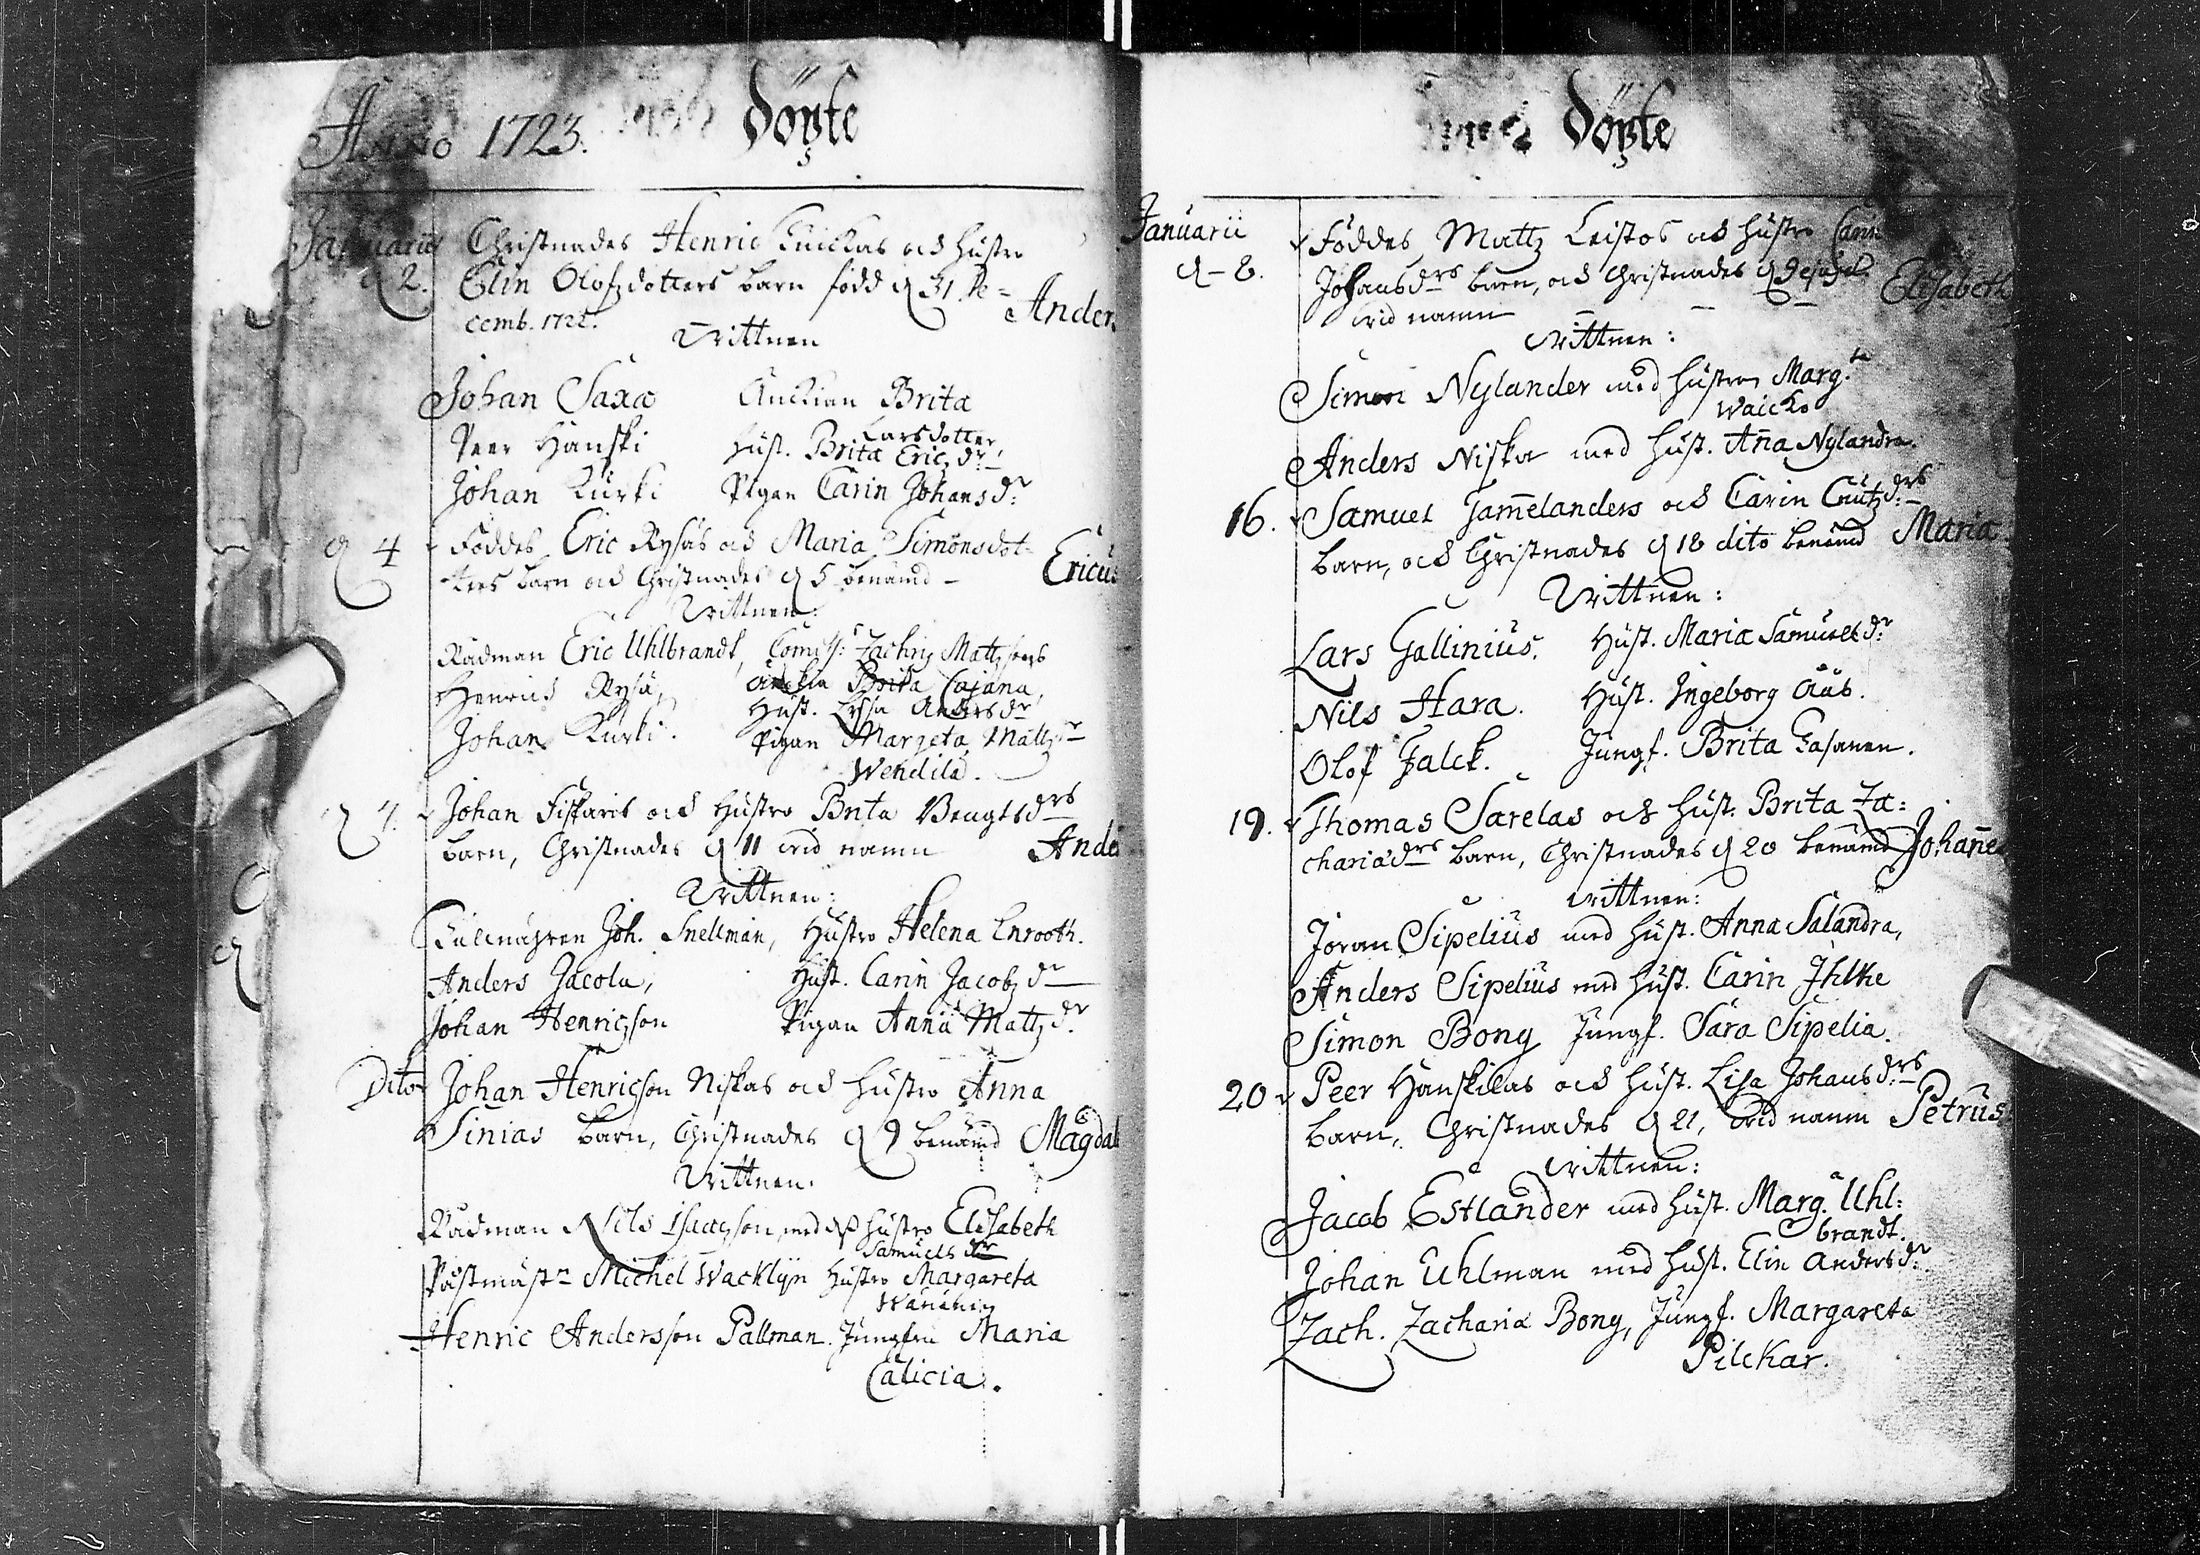 Anno 1723. Döpte
Januarii Christnades Henric Kuickas och hustro
d 2. Elin Olofzdotters barn född d 31 De=
cemb. 1722. Anders
Wittnen
Johan Saxa Änckian Brita
Larsdotter
Peer Hanski hust. Brita Eric dr
Johan Kurki Pigan Carin Johans dr
d 4 Föddes Eric Rysäs och Maria Simonsdot=
ters barn och Christnades d 5 benämd – Ericus
Wittnen:
Rådman Eric Uhlbrandt, Zachris Mattzsons
Henrich Rysä, Brita Cajana,
Hust. Lysa Anders dr
Johan Kurki. Pigan Margeta Mattz dr
Wendila.
d 7. Johan Fiskaris och Hustro Brita Bengts drs
barn, Christnades d 11 wid namn Ande
Wittnen:
Joh. Snellman, Hustro Helena Enrooth.
Anders Jacola, Hust. Carin Jacobz dr
Johan Henricson Pigan Anna Mattz dr
Dito Johan Henricson Niskas och hustro Anna
Sinias barn, Christnades d 9 benämd Magdal
Wittnen.
Rådman Nils Isacsson, med dess hustro Elisabeth
Samuels dr
Påstmästr Michel Wacklijn Hustro Margareta
Henric Andersson Pallman. Jungfru Maria
Calicia.
Döpte
Januarii Föddes Mattz Leistos och hustro Carin
d – 8. Johans drs barn, och Christnades d 9
wid namn Elisabeth
Wittnen:
Simon Nylander med hustro Marg.ta
Waicko
Anders Niska med hust. Aña Nylandra.
16. Samuel Gam̃elanders och Carin Cnutz drs
barn, och Christnades d 18 dito benämd Maria
Wittnen:
Lars Gallinius. Hust. Maria Samuels dr
Nils Hara. Hust. Ingeborg Aus.
Olof Falck. Jungf. Brita Casanen.
19. Thomas Sarelas och hust. Brita Za=
charia drs barn, Christnades d 20 benämd Johañes
Wittnen:
Joran Sipelius med hust. Anna Salandra,
Anders Sipelius med hust. Carin Ihlke
Simon Bong Jungf. Sara Sipelia.
20 Peer Hanskilas och hust. Lisa Johans drs
barn, Christnades d 21, wid namn Petrus
Wittnen:
Jacob Estlander med hust. Marg.a Uhl=
brandt.
Johan Uhlman med hust. Elin Anders dr
Zach. Zacharia Bong, Jungf. Margareta
Pilckar.